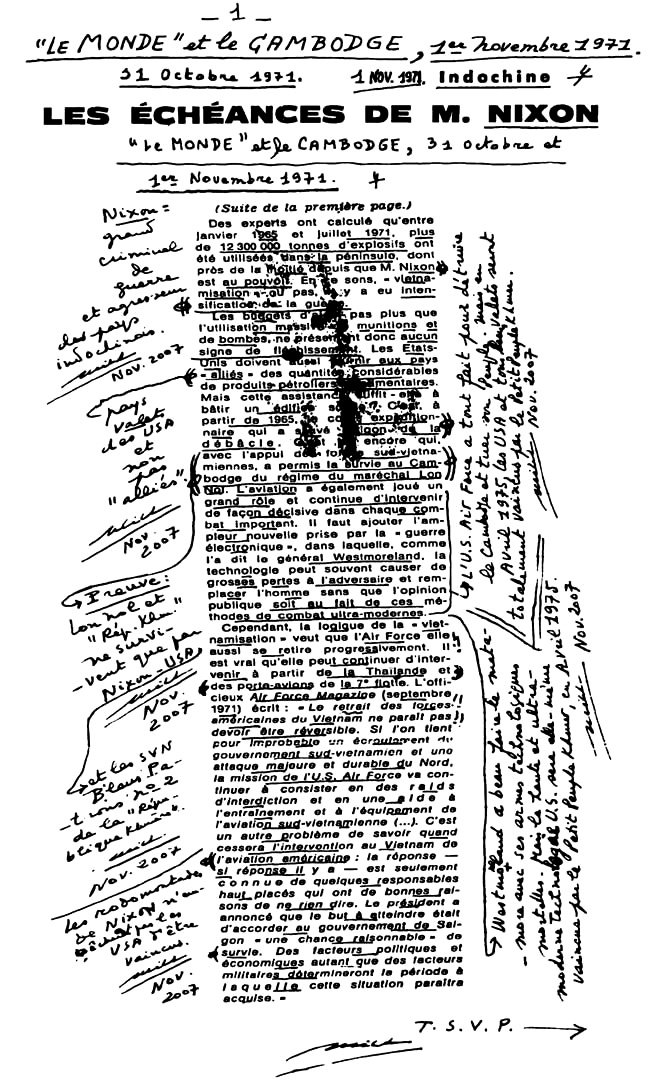 — 1 —
"LE MONDE" et le CAMBODGE, 1er Novembre 1971.
31 Octobre 1971. 1 NOV. 1971. Indochine
LES ÉCHÉANCES DE M. NIXON
"Le MONDE" et le CAMBODGE, 31 Octobre et
1er Novembre 1971.
(Suite de la première page.)
Des experts ont calculé qu'entre
janvier 1965 et juillet 1971, plus
de 12 300 000 tonnes d'explosifs ont
été utilisées dans la péninsule, dont
près de la moitié depuis que M. Nixon
est au pouvoir. En ce sens, « vietna-
misation » ou pas, il y a eu inten-
sification de la guerre.
Les budgets d' pas plus que
l'utilisation massive munitions et
de bombes, ne présentent donc aucun
signe de fléchissement. Les Etats-
Unis doivent aussi fournir aux pays
« alliés » des quantités considérables
de produits pétroliers alimentaires.
Mais cette assistance suffit-elle à
bâtir un édifice C'est, à
partir de 1965, le corps expédition-
naire qui a sauvé Saigon de la
débâcle. C'est encore qui,
avec l'appui des forces sud-vietna-
miennes, a permis la survie au Cam-
bodge du régime du maréchal Lon
Nol. L'aviation a également joué un
grand rôle et continue d'intervenir
de façon décisive dans chaque com-
bat important. Il faut ajouter l'am-
pleur nouvelle prise par la « guerre
électronique », dans laquelle, comme
l'a dit le général Westmoreland, la
technologie peut souvent causer de
grosses pertes à l'adversaire et rem-
placer l'homme sans que l'opinion
publique soit au fait de ces mé-
thodes de combat ultra-modernes.
Cependant, la logique de la « viet-
namisation » veut que l'Air Force elle
aussi se retire progressivement. Il
est vrai qu'elle peut continuer d'inter-
venir à partir de la Thaïlande et
des porte-avions de la 7e flotte. L'offi-
cieux Air Force Magazine (septembre
1971) écrit : « Le retrait des forces
américaines du Vietnam ne paraît pas
devoir être réversible. Si l'on tient
pour improbable un écroulement du
gouvernement sud-vietnamien et une
attaque majeure et durable du Nord,
la mission de l'U.S. Air Force va con-
tinuer à consister en des raids
d'interdiction et en une aide à
l'entraînement et à l'équipement de
l'aviation sud-vietnamienne (...). C'est
un autre problème de savoir quand
cessera l'intervention au Vietnam de
l'aviation américaine : la réponse —
si réponse il y a — est seulement
connue de quelques responsables
haut placés qui ont de bonnes rai-
sons de ne rien dire. Le président a
annoncé que le but à atteindre était
d'accorder au gouvernement de Sai-
gon « une chance raisonnable » de
survie. Des facteurs politiques et
économiques autant que des facteurs
militaires détermineront la période à
laquelle cette situation paraîtra
acquise. »
Nixon =
grand
criminel
de
guerre
et agresseur
des pays
indochinois.
Nov. 2007
pays
valets
des USA
et
non
pas
"alliés".
Nov.
2007
Preuve:
Lon Nol et
"Rép. Khm."
ne survi-
vent que par
Nixon-USA
Nov.
2007
et les SVN
Pa-
trons no 2
de la "Répu-
blique Khmère".
Nov. 2007
Les rodomontades
de Nixon n'em-
pêchent pas les
USA d'être
vaincus.
Nov.
2007
L'U.S. Air Force a tout fait pour détruire
le Cambodge et tuer son Peuple, mais en
Avril 1975, les USA et tous leurs valets sont
totalement vaincus par le Petit Peuple Khmer.
Nov. 2007
Westmoreland a beau faire le mata-
more avec ses armes technologiques
mortelles, mais la haute et ultra-
moderne technologie U.S. sera elle-même
vaincue par le Petit Peuple Khmer, en Avril 1975.
Nov. 2007
T. S. V. P.